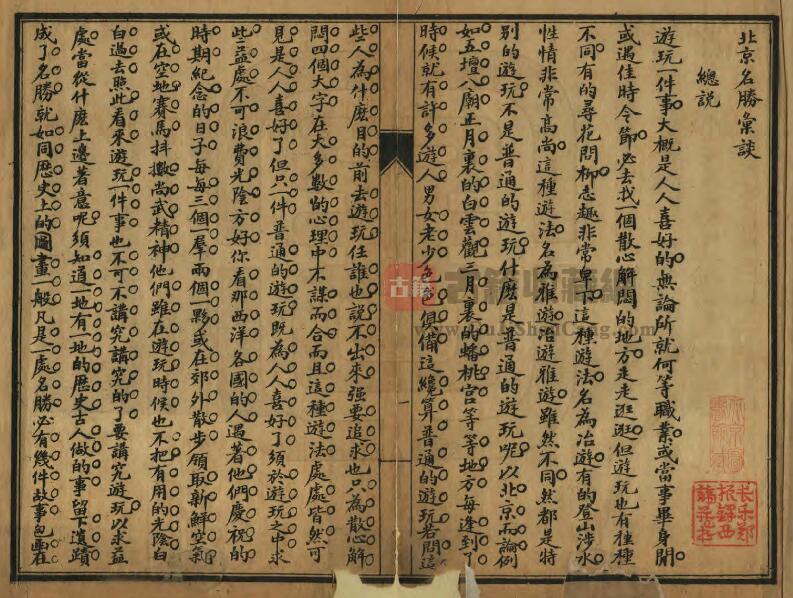 北京名勝彙談
總説
遊玩一件事大概是人人喜好的無論所就何等職業或當事畢身閒
或遇佳時令節必去找一個散心解悶的地方走走逛逛但遊玩也有種種
不同有的尋花問柳志趣非常卑下這種遊法名為冶遊有的登山涉水
性情非常高尚這種遊法名為雅遊冶遊雅遊雖然不同然都是特
別的遊玩不是普通的遊玩什麽是普通的遊玩呢以北京而論例
如五壇八廟正月裏的白雲觀三月裏的蟠桃宮等等地方每逢到了
時候就有許多遊人男女老少色色俱備這纔算普通的遊玩若問這
些人為什麽目的前去遊玩任誰也說不出來強要追求也只為散心解
悶四個大字在大多數的心理中不謀而合而且這種遊法處處皆然可
見是人人喜好了但只一件普通的遊玩既為人人喜好了須於遊玩之中求
些益處不可浪費光陰方好你看那西洋各國的人遇著他們慶祝的
時期紀念的日子每每三個一羣兩個一夥或在郊外散步領取新鮮空氣
或在空地賽馬抖擻尚武精神他們雖在遊玩時候也不把有用的光陰白
白過去照此看來遊玩一件事也不可不講究講究的了要講究遊玩以求益
處當從什麽上邊著意呢須知道一地有一地的歷史古人做的事留下遺蹟
成了名勝就如同歷史上的圖畫一般凡是一處名勝必有幾件故事包圍在
长乐郑
振铎西
谛藏书
古籍